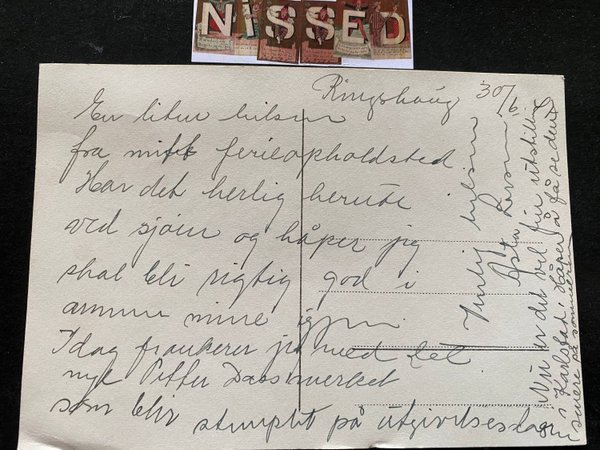 NISSED
Ringshaug 30/6
En liten hilsen
fra mitt ferieopholdsted.
Har det herlig herute
ved sjøen og håper jeg
skal bli rigtig god i
armene mine igjen.
Idag frankerer jeg med det
nye Petter Dass merket
som blir stemplet på utgivelsesdagen
Hilsen
Larsen
Nu er det vel fin utstilling
i Karlstad. Håper å få se den
senere på sommeren